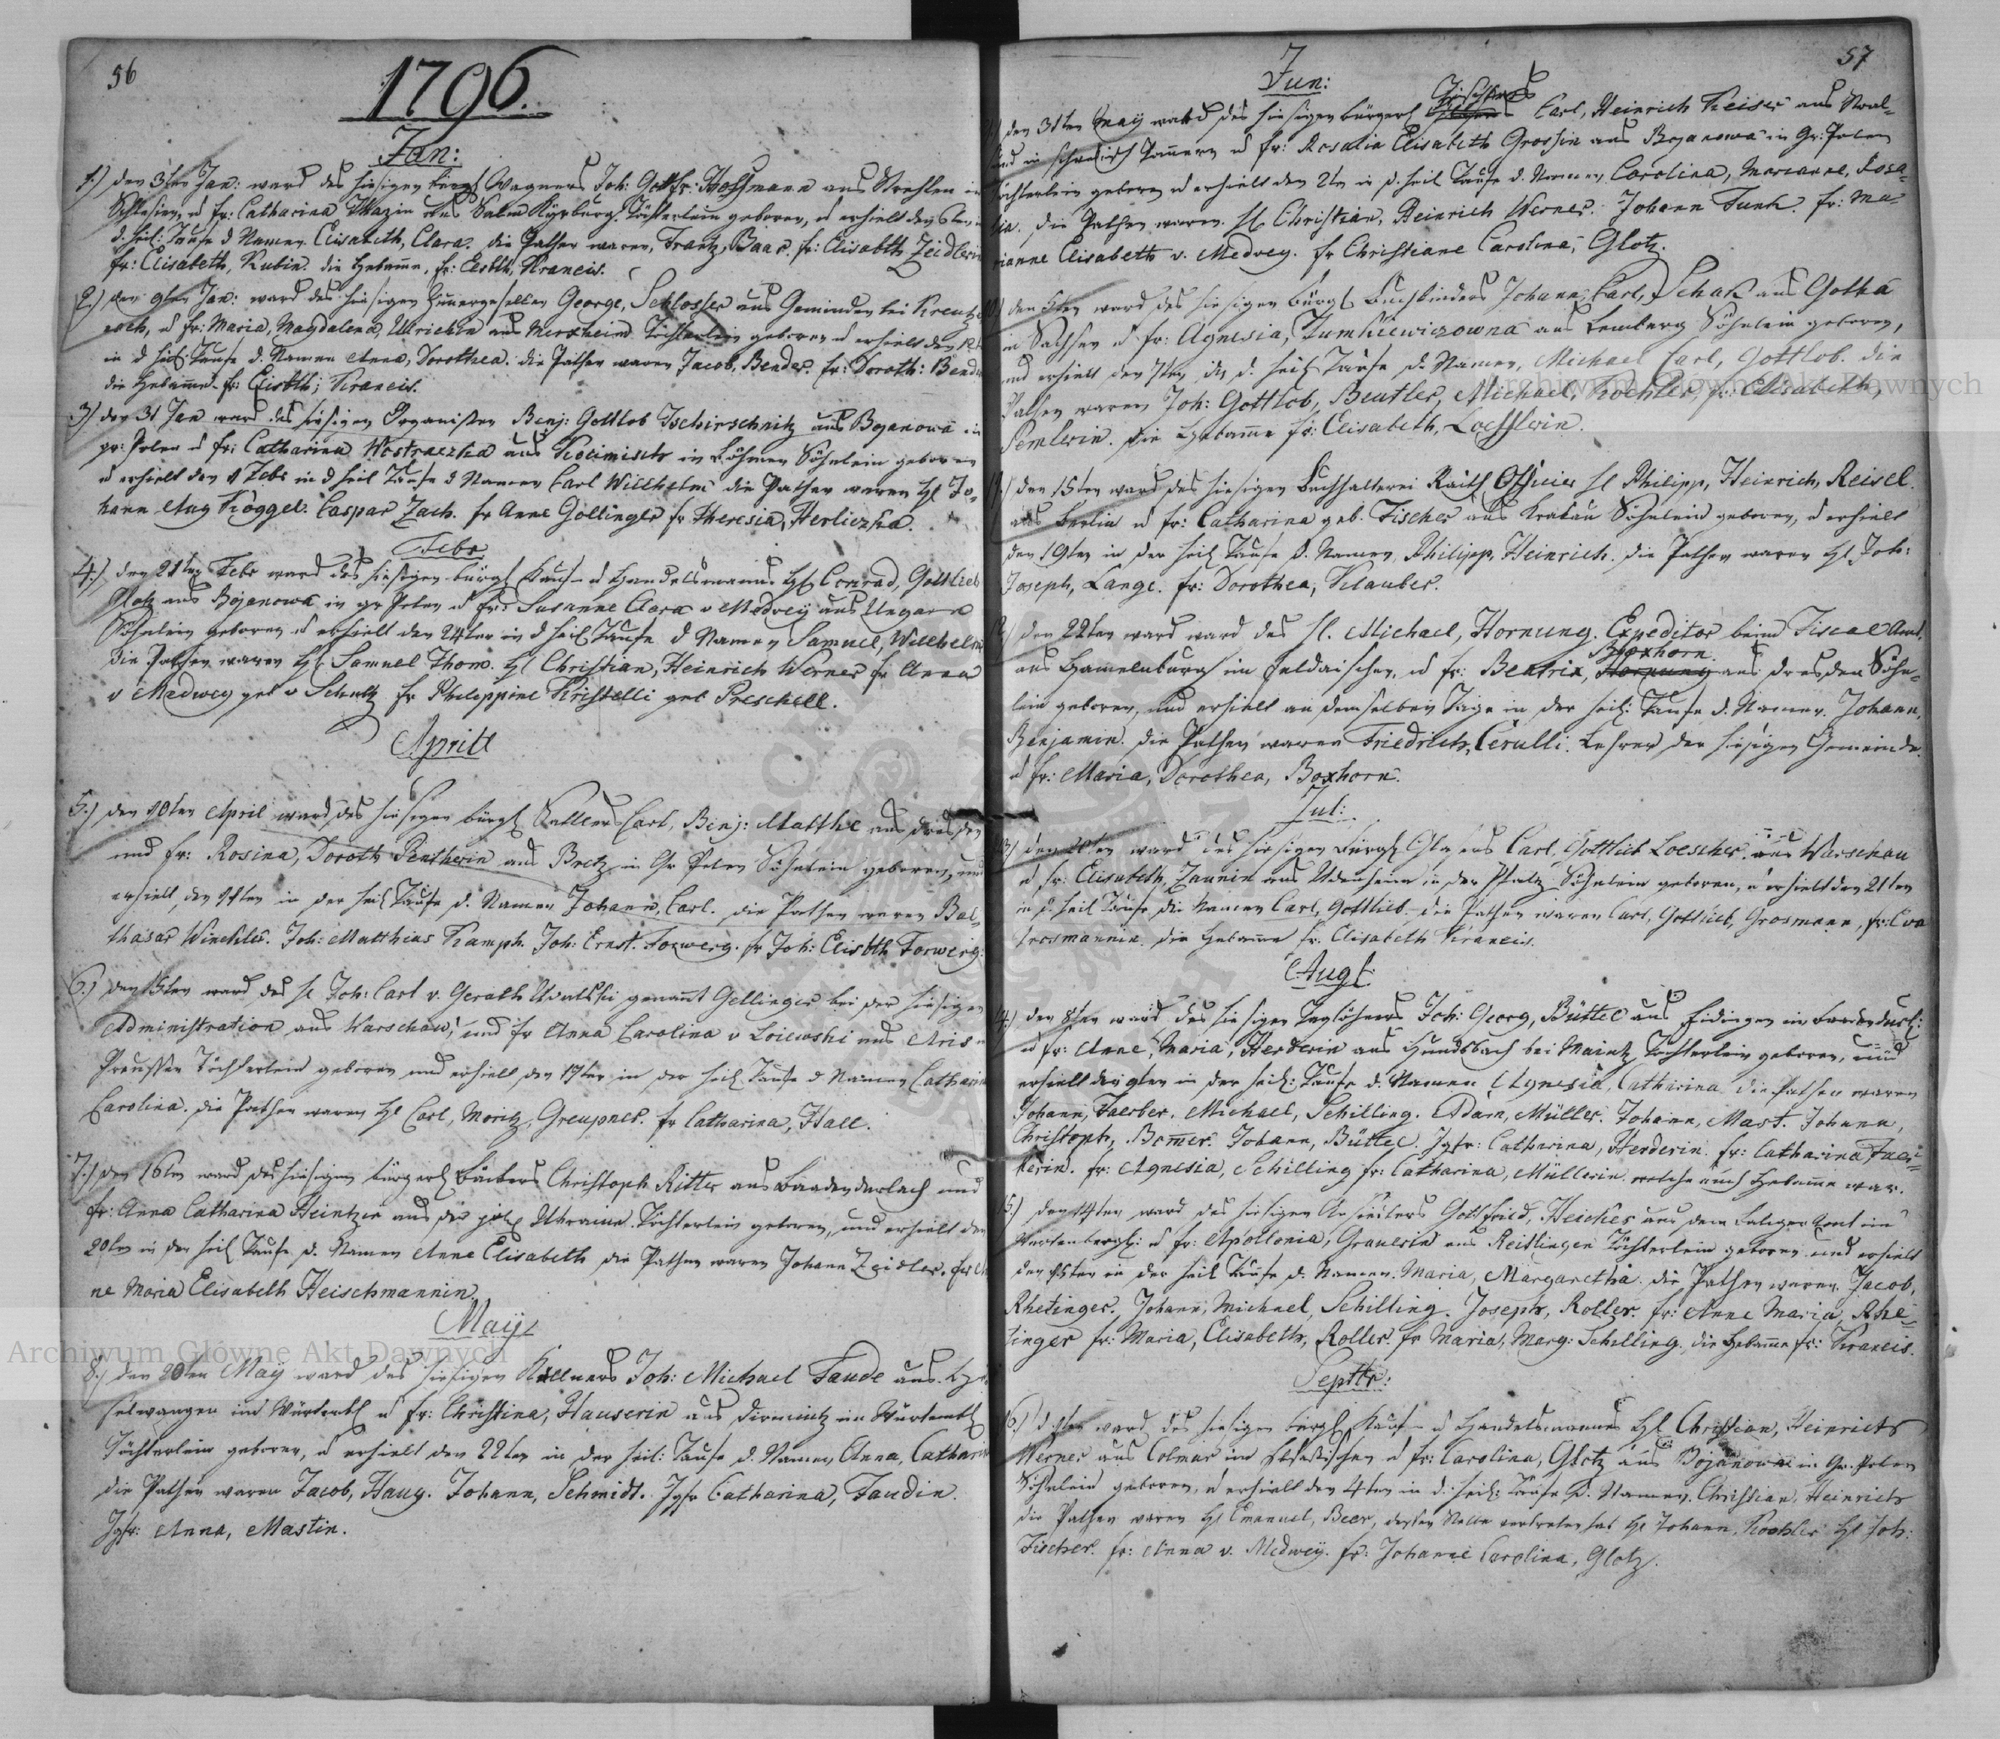 56
1796.
Jan:
1.) den 3ten Jan: ward des hiesigen bürgl Wagners Joh: Gottfr: Hoffmann aus Strehlen in
Schlesien, u fr: Catharina Töchterlein geboren, u erhielt den
d. heil: Taufe d Namen Elisabeth, Clara. die Pathen waren, Frantz, Baar. fr: Elisabth Zeidlerin
fr: Elisabeth, Rubin. die Hebamme, fr: Elsbth, Kraneis.
2.) den 9ten Jan: ward des hiesigen Zimmergesellen George, Schlosser aus Gemünden bei Kreutze
nach, u fr: Maria, Magdalena, Ulrichin aus Merxheim Töchterlein geboren u erhielt den
in d heil Taufe d. Namen Anna, Dorothea. die Pathen waren Jacob, Bender. fr: Doroth: Bender
die Hebamme. fr: Elsbth; Kraneis.
3) den 31 Jan ward des hiesigen Organisten Benj: Gottlob Tschirschnitz aus Bojanowa in
gr: Polen u fr: Catharina Kostraczka aus in Böhmen Söhnlein geboren
u erhielt den Febr in d heil Taufe d Namen Carl Willhelm die Pathen waren Hl Jo-
hann Aug Köggel. Caspar Zach. fr Anne Gollinger fr Theresia, Herliczka.
Febr
4.) den 21ten Febr ward des hiesigen bürgl Kauf- u Handelsmanns Hl Conrad, Gottlieb
Glotz aus Bojanowa in gr Polen u fr: Susanne Clara v Medvey aus Ungarn
Söhnlein geboren u erhielt den 24ten in d heil Taufe d Namen Samuel, Willhelm
die Pathen waren Hl Samuel Thom. Hl Christian, Heinrich Werner fr Anna
v Medwey geb v Schultz fr Philippine Kristelli geb Preschell.
Aprill
5.) den 10ten April ward des hiesigen bürgl Sattlers Carl, Benj: Matthe aus Dresden
und fr: Rosina, Doroth Pentherin aus Bretz in Gr Polen Söhnlein geboren, und
erhielt, den 11ten in der heil Taufe d. Namen Johann, Carl. die Pathen waren Bal-
thasar Winckler. Joh: Matthias Kamph. Joh: Ernst. Forwerg. fr Joh: Elisbth Forwerg.
6.) den 15ten ward des Hl Joh: Carl v. Gerath Uvalski genannt Gellinger bei der hiesigen
Administration aus Warschau, und fr Anna Carolina v Loiewski aus Aris in
Preussen Töchterlein geboren und erhielt den 17ten in der heil Taufe d Namen Catharina
Carolina. die Pathen waren Hl Carl, Moritz, Greupner. fr Catharina, Hall.
7.) den 16ten ward des hiesigen bürgerl Bäckers Christoph Ritter aus Baadendurlach und
fr: Anna Catharina Heintzin aus der Ukraine Töchterlein geboren, und erhielt den
20ten in der heil Taufe d. Namen Anne Elisabeth die Pathen waren Johann Zeidler. fr:
ne Maria Elisabeth Heischmannin.
May
8.) den 20ten May ward des hiesigen Kellners Joh: Michael Faude aus
selwangen im Würtembl u fr: Christina, Hauserin aus im Würtembl
Töchterlein geboren, u erhielt den 22ten in der heil: Taufe d. Namen Anna, Catharina
die Pathen waren Jacob, Haug. Johann, Schmidt. Jgfr Catharina, Faudin.
Jgfr: Anna, Mastin.
57
Jun:
den 31ten May ward des hiesigen bürgerl Tischlers Carl, Heinrich Keiser aus Stral-
sund in schwedisch Pommern u fr: Rosalia Elisabeth Grossin aus Bojanowa in Gr: Polen
Töchterlein geboren u erhielt den 2ten in d. heil Taufe d. Namen Carolina, Marianne, Rosa-
lia. die Pathen waren Hl Christian, Heinrich Werner. Johann Funk. fr: Ma-
rianne Elisabeth v. Medvey. fr Christiane Carolina, Glotz.
den 5ten ward des hiesigen bürgl Buchbinders Johann, Carl, Schaß aus Gotha
in Sachsen u fr: Agnesia, Tumkiewiczowna aus Lemberg Söhnlein geboren,
und erhielt den 7ten in d. heil Taufe d. Namen, Michael Carl, Gottlob. die
Pathen waren Joh: Gottlob, Beutler, Michael, Koehler, fr: Elisabeth,
Semlerin. die Hebamme fr: Elisabeth, Loefflerin.
den 15ten ward des hiesigen Buchhalterei Raitl Officier Hl Philipp, Heinrich, Reisel.
aus Berlin u fr: Catharina geb. Fischer aus Krakau Söhnlein geboren, u erhielt
den 19ten in der heil Taufe d. Namen, Philipp, Heinrich. die Pathen waren Hl Joh:
Joseph, Lange. fr: Dorothea, Klauber.
den 22ten ward ward des Hl. Michael, Hornung. Expeditor beim Fiscal Amt,
aus Hamelnburg im Fuldaischen, u fr: Beatrix, Hornung Boxhorn aus Dresden Söhn-
lein geboren, und erhielt an demselben Tage in der heil: Taufe d. Namen. Johann,
Benjamin. die Pathen waren Friedrich, Cerulli. Lehrer der hiesigen Gemeinde.
u fr: Maria, Dorothea, Boxhorn.
Jul:
13) den 20ten ward des hiesigen bürgl Glasers Carl, Gottlieb Loescher. aus Warschau
u fr: Elisabeth, Zaunin aus Udenheim in der Pfaltz Söhnlein geboren, u erhielt den 21ten
in d. heil Taufe die Namen Carl, Gottlieb. die Pathen waren Carl, Gottlieb, Grosmann, fr: Eva
Grosmannin. die Hebamme fr. Elisabeth Kraneis.
Augt:
14.) den 8ten ward des hiesigen Taglöhners Joh: Georg, Büttel aus Eidingen im Baadendurl:
u fr: Anne, Maria, Herderin aus Hundsbach bei Maintz Töchterlein geboren, und
erhielt den 9ten in der heil: Taufe d. Namen Agnesia, Catharina die Pathen waren
Johann, Faerber. Michael, Schilling. Adam, Müller. Johann, Mast. Johann,
Christoph, Bomer. Johann, Büttel. Jgfr: Catharina, Herderin. fr: Catharina Faer-
berin. fr: Agnesia, Schilling fr: Catharina, Müllerin welche auch Hebamme war.
15) den 14ten ward des hiesigen Gottfried, Heicher aus dem Balinger Amt im
Würtenbergl: u fr: Apollonia, Grauerin aus Reitlingen Töchterlein geboren und erhielt
den 15ten in der heil Taufe d. Namen. Maria, Margaretha. die Pathen waren. Jacob,
Rhetinger. Johann, Michael, Schilling. Joseph, Roller. fr: Anne Maria, Rhe-
tinger fr: Maria, Elisabeth, Roller. fr Maria, Marg: Schilling, die Hebamme fr: Kraneis.
Septbr:
16.) d ward des hiesigen bürgl Kauf- u Handelsmannes Hl Christian, Heinrich
Werner aus Colmar im Elsaßischen u fr: Carolina, Glotz aus Bojanowa in Gr. Polen
Söhnlein geboren, u erhielt den 4ten in d. heil: Taufe d. Namen. Christian, Heinrich
die Pathen waren Hl Emanuel, Beer, dessen Stelle vertreten hat Hl Johann, Koehler Hl Joh:
Fischer. fr: Anna v. Medwey. fr: Johanne Carolina, Glotz.
Archiwum Główne Akt Dawnych
Archiwum Główne Akt Dawnych